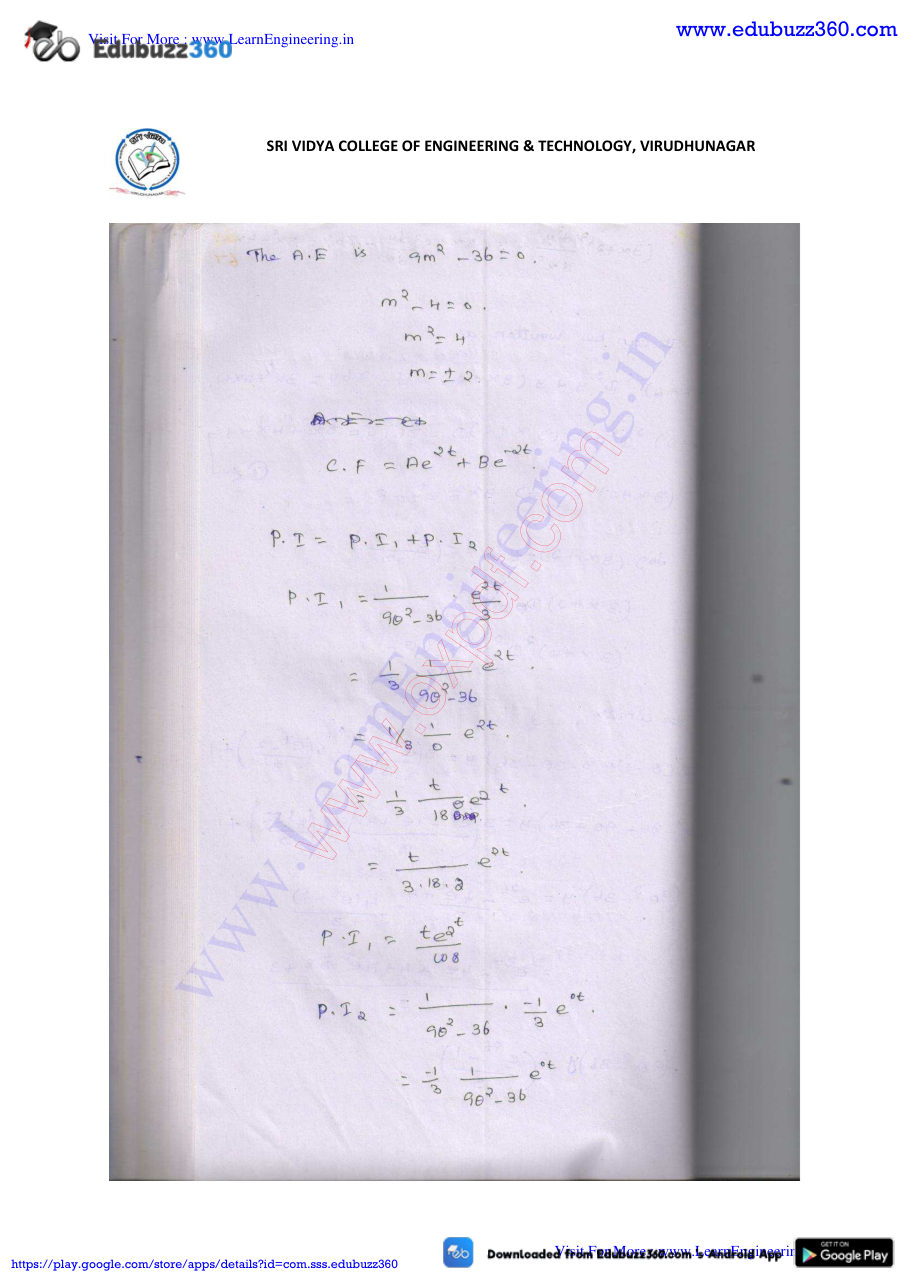 Visit For More : www.LearnEngineering.in
Edubuzz360
www.edubuzz360.com
SRI VIDYA COLLEGE OF ENGINEERING & TECHNOLOGY, VIRUDHUNAGAR
The A.E is 9m² - 36 = 0.
m² - 4 = 0.
m² = 4
m = ± 2.
C.F = Ae^2t + Be^-2t.
P.I = P.I₁ + P.I₂
P.I₁ = 1/(9θ² - 36) · e^2t/3
= 1/3 1/(9θ² - 36) e^2t.
= 1/3 1/0 e^2t.
= 1/3 t/18θ e^2t.
= t/(3.18.2) e^2t.
P.I₁ = te^2t/108
P.I₂ = 1/(9θ² - 36) · -1/3 e^0t.
= -1/3 1/(9θ² - 36) e^0t
www.LearnEngineering.in
www.oxpdf.com
https://play.google.com/store/apps/details?id=com.sss.edubuzz360
eb
Downloaded from Edubuzz360.com's Android App
Visit For More : www.LearnEngineerin
GET IT ON
Google Play